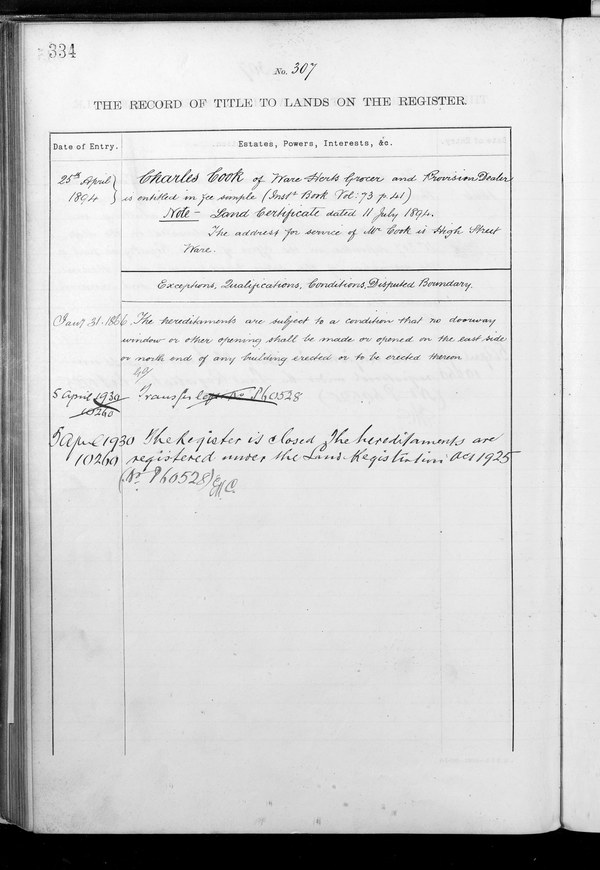 334
No. 307
THE RECORD OF TITLE TO LANDS ON THE REGISTER.
Date of Entry.
Estates, Powers, Interests, &c.
25th April 1894
Charles Cook of Ware Herts Grocer and Provision Dealer
is entitled in fee simple (Inst. Book Vol: 73 p. 41)
Note - Land Certificate dated 11 July 1894.
The address for service of Mr Cook is High Street
Ware.
Exceptions, Qualifications, Conditions, Disputed Boundary.
Jany 31. 1866. The hereditaments are subject to a condition that no doorway
window or other opening shall be made or opened on the east side
or north end of any building erected or to be erected thereon
5 April 1930 Transfer No P60528
10260
5 April 1930 The Register is closed. The hereditaments are
10260 registered under the Land Registration Act 1925
(No. P60528)